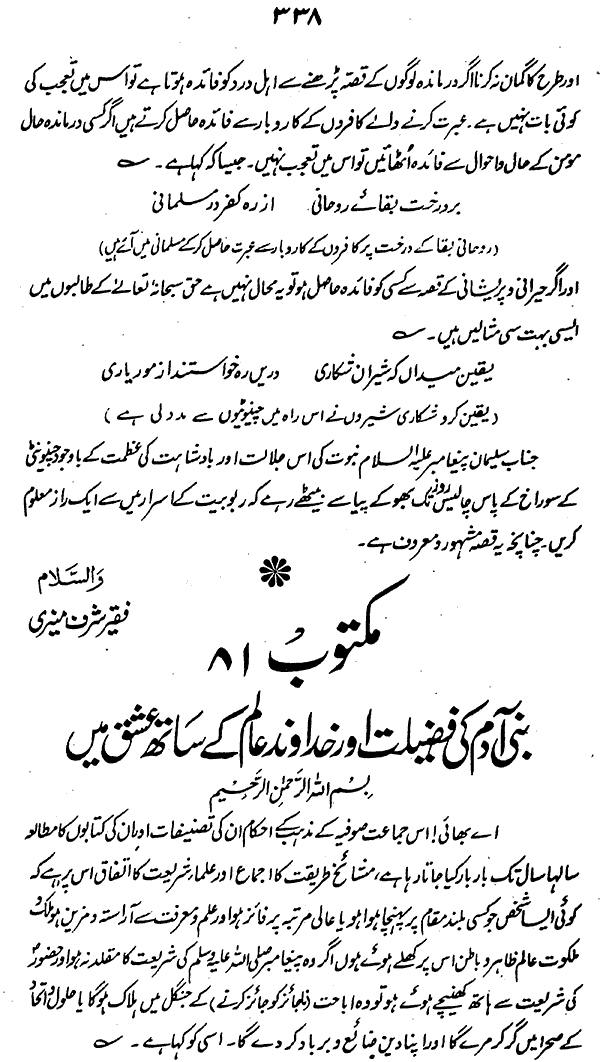 ۳۳۸
اور طرح کا گمان نہ کرنا اگر درماندہ لوگوں کے قصہ پڑھنے سے اہل درد کو فائدہ ہوتا ہے تو اس میں تعجب کی
کوئی بات نہیں ہے۔ عبرت کرنے والے کافروں کے کاروبار سے فائدہ حاصل کرتے ہیں اگر کسی درماندہ حال
مومن کے حال و احوال سے فائدہ اُٹھائیں تو اس میں تعجب نہیں۔ جیسا کہ کہا ہے۔ ؎
بر درخت بقائے روحانی از رہ کفر در مسلمانی
(روحانی بقا کے درخت پر کافروں کے کاروبار سے عبرت حاصل کر کے مسلمانی میں آئے ہیں)
اور اگر حیرانی و پریشانی کے قصہ سے کسی کو فائدہ حاصل ہو تو یہ محال نہیں ہے حق سبحانہٗ تعالےٰ کے طالبوں میں
ایسی بہت سی مثالیں ہیں۔ ؎
یقین میداں کہ شیران شکاری دریں رہ خواستند از مور یاری
(یقین کرو شکاری شیروں نے اس راہ میں چینوٹیوں سے مدد لی ہے)
جناب سلیمان پیغامبر علیہ السلام نبوت کی اس جلالت اور بادشاہت کی عظمت کے باوجود چینوٹی
کے سوراخ کے پاس چالیس روز تک بھوکے پیاسے بیٹھے رہے کہ ربوبیت کے اسرار میں سے ایک راز معلوم
کریں۔ چنانچہ یہ قصہ مشہور و معروف ہے۔
والسّلام
فقیر شرف منیری
مکتوب ۸۱
بنی آدم کی فضیلت اور خداوند عالم کے ساتھ عشق میں
بِسْمِ اللهِ الرَّحْمٰنِ الرَّحِيْمِ
اے بھائی! اس جماعت صوفیہ کے مذہب کے احکام ان کی تصنیفات اور ان کی کتابوں کا مطالعہ
سالہا سال تک بار بار کیا جاتا رہا ہے، مشائخ طریقت کا اجماع اور علماء شریعت کا اتفاق اس پر ہے کہ
کوئی ایسا شخص جو کسی بلند مقام پر پہنچا ہوا ہو یا عالی مرتبہ پر فائز ہو اور علم و معرفت سے آراستہ و مزین ہو ملک و
ملکوت عالم ظاہر و باطن اس پر کھلے ہوئے ہوں اگر وہ پیغامبر صلی اللہ علیہ وسلم کی شریعت کا مقلد نہ ہو اور حضورؐ
کی شریعت سے ہاتھ کھینچے ہوئے ہو تو وہ اباحت (ناجائز کو جائز کرنے) کے جنگل میں ہلاک ہوگا یا حلول و اتحاد
کے صحرا میں گر کر مرے گا اور اپنا دین ضائع و برباد کر دے گا۔ اسی کو کہا ہے۔ ؎